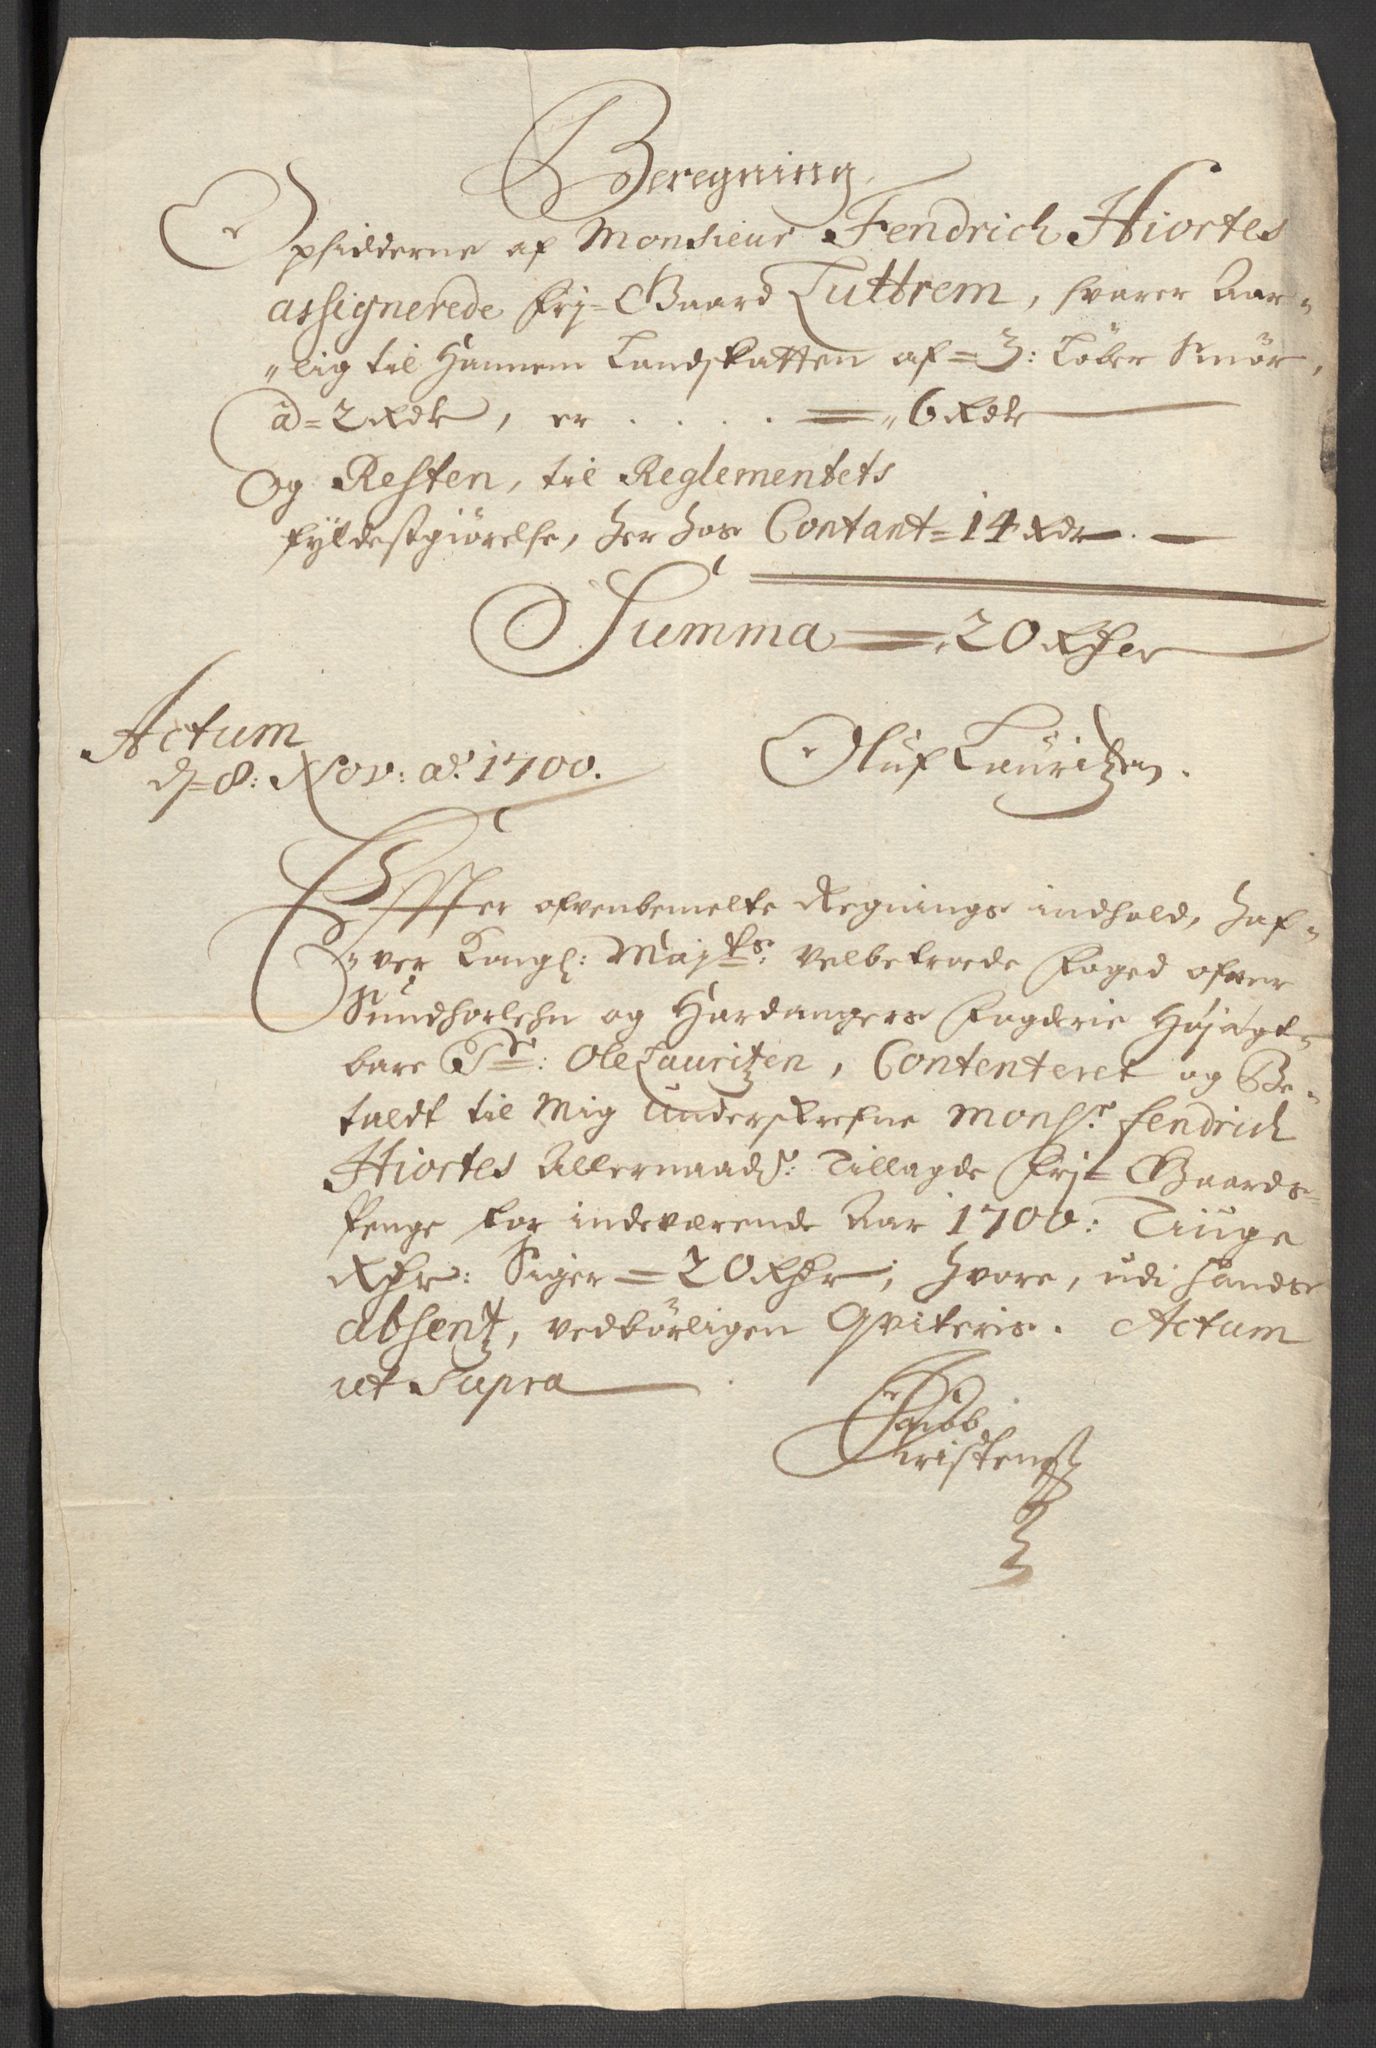 Beregning
Opsidderne af Monsieur Fendrich Hiortes
assignerede frj=Gaard Luttrem, svarer Aar=
"lig til Hannem Landskatten af=3: Løber Smør,
â=2 Rdr, er . . . . = "6 Rdr
Og Resten, til Reglementets
fyldestgiørelse, her hos Contant=14 Rdr. —
Summa = 20 Rdr
Actum
d=8: Nov: aô: 1700.
Oluf Lauritzen.
Efter ofvenbemelte Regnings indhold, haf=
"ver Kongl: Maj:ts: velbetroede foged ofver
Sundhorlehn og Hardangers fogderie Højagt=
bare Sr: Ole Lauritzen, Contenteret og Be=
taldt til Mig underskrefne Monsr. fendrich
Hiortes Allernaadst: Tillagde frj=Gaards=
Penge for indeværende Aar 1700: Tiuge
Rdr: Siger = 20 Rdr; hvore, udi hands
absentz, vedbørligen Qviteris. Actum
ut Supra
Jacob
Christens